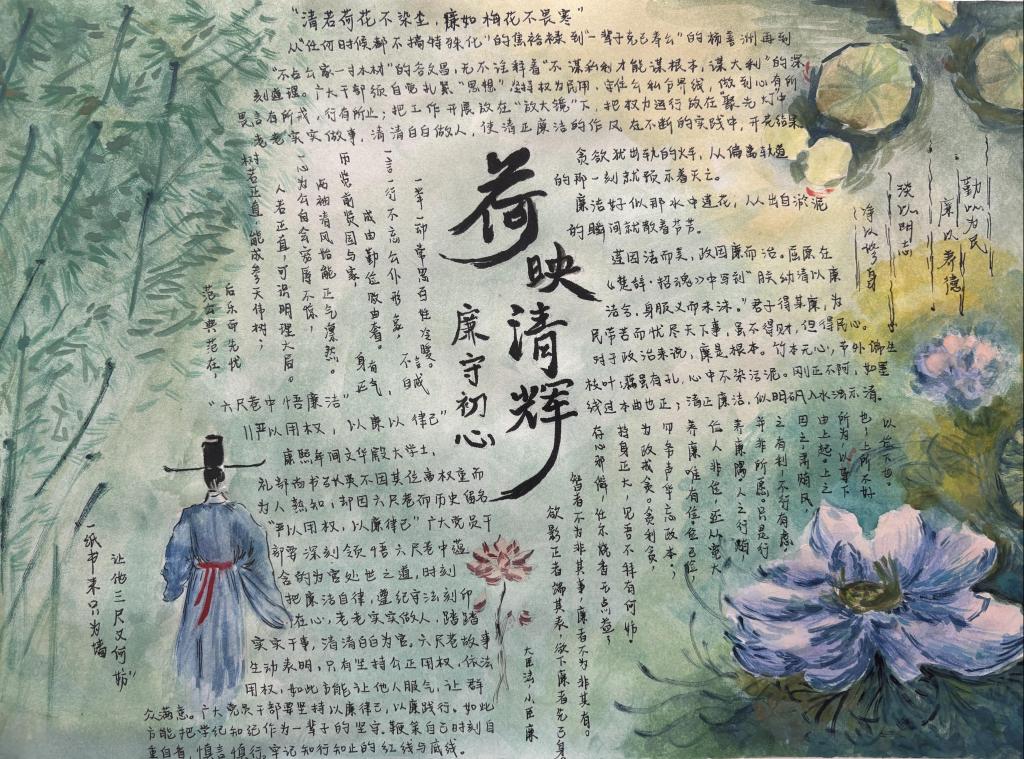 “清若荷花不染尘，廉如梅花不畏寒”
从“任何时候都不搞特殊化”的焦裕禄到“一辈子克己奉公”的杨善洲再到
“不占公家一寸木材”的谷文昌，无不诠释着“不谋私利才能谋根本，谋大利”的深
刻道理。广大干部须自觉扎紧“思想”，坚持权为民用，守住公私分界线，做到心有所
畏言有所戒，行有所止；把工作开展放在“放大镜”下，把权力运行放在“聚光灯”中
老老实实做事，清清白白做人，使清正廉洁的作风在不断的实践中，开花结果
贪欲犹出轨的火车，从偏离轨道
的那一刻就预示着灭亡。
廉洁好似那水中莲花，从出自淤泥
的瞬间就散着芬芳。
莲因洁而美，政因廉而治。屈原在
《楚辞·招魂》中写到“朕幼清以廉
洁兮，身服义而未沫。”君子得其廉，为
民带苦而忧尽天下事，虽不得财，但得民心。
对于政治来说，廉是根本。竹本无心，节外偏生
枝叶；藕虽有孔，心中不染污泥。刚正不阿，如墨
线过木曲也正；清正廉洁，似明矾入水浊亦清。
勤以为民
廉以养德
淡以明志
净以修身
荷映清辉
廉守初心
一举一动常思百姓冷暖。
一言一行不忘公仆形象，
成由勤俭败由奢。
历览前贤国与家，
两袖清风怡能正气凛然。
一心为公自会宠辱不惊，
人若正直，可识明理大启。
树若正直，能成参天伟树；
后乐而先忧
范公典范在，
“六尺巷中悟廉洁”
“严以用权，以廉律己”
康熙年间文华殿大学士，
礼部尚书张英不因其位高权重而
为人熟知，却因六尺巷而历史留名
“严以用权，以廉律己”广大党员干
部要深刻领悟六尺巷中蕴
含的为官处世之道，时刻
把廉洁自律，遵纪守法刻印
在心，老老实实做人，踏踏
实实干事，清清白白为官。六尺巷故事
生动表明，只有坚持公正用权，依法
用权，如此方能让他人服气，让群
众满意。广大党员干部要坚持以廉律己，以廉践行。如此
方能把学纪知纪作为一辈子的坚守，鞭策自己时刻自
重自省，慎言慎行，牢记知行知止的红线与底线。
让他三尺又何妨”
一纸书来只为墙
以告下也。
也；上所不好
所为，以导下
由上起。上之
因之肃脑风，
之有利不行有虑
平非所愿。只是行
养廉隅，人之行頠
俗人非俭，还从宽大
养廉唯有俭。俭己俭，
四务声华忘政本，
为政戒贪。贪利贪，
持身正大，见吾不拜有何妨。
存心邪僻，任尔烧香无点益，
智者不为非其事，廉者不为非其有。
欲影正者端其表，欲下廉者先己身
大臣法，小臣廉